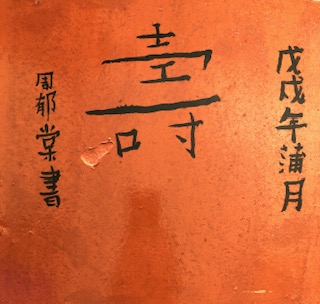 戊戌年蒲月
壽
周郁棠書